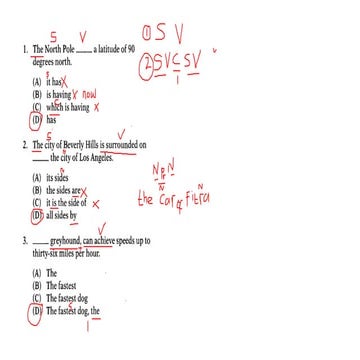 S V ① S V
1. The North Pole ____ a latitude of 90
degrees north.
② S V C S V
(A) it has x
(B) is having x now
(C) which is having x
(D) has
S V
2. The city of Beverly Hills is surrounded on
____ the city of Los Angeles.
(A) its sides
(B) the sides are x
(C) it is the side of x
(D) all sides by
N P N
N N
the car of Fitra
3. ____ greyhound, can achieve speeds up to
thirty-six miles per hour.
(A) The
(B) The fastest
(C) The fastest dog
(D) The fastest dog, the